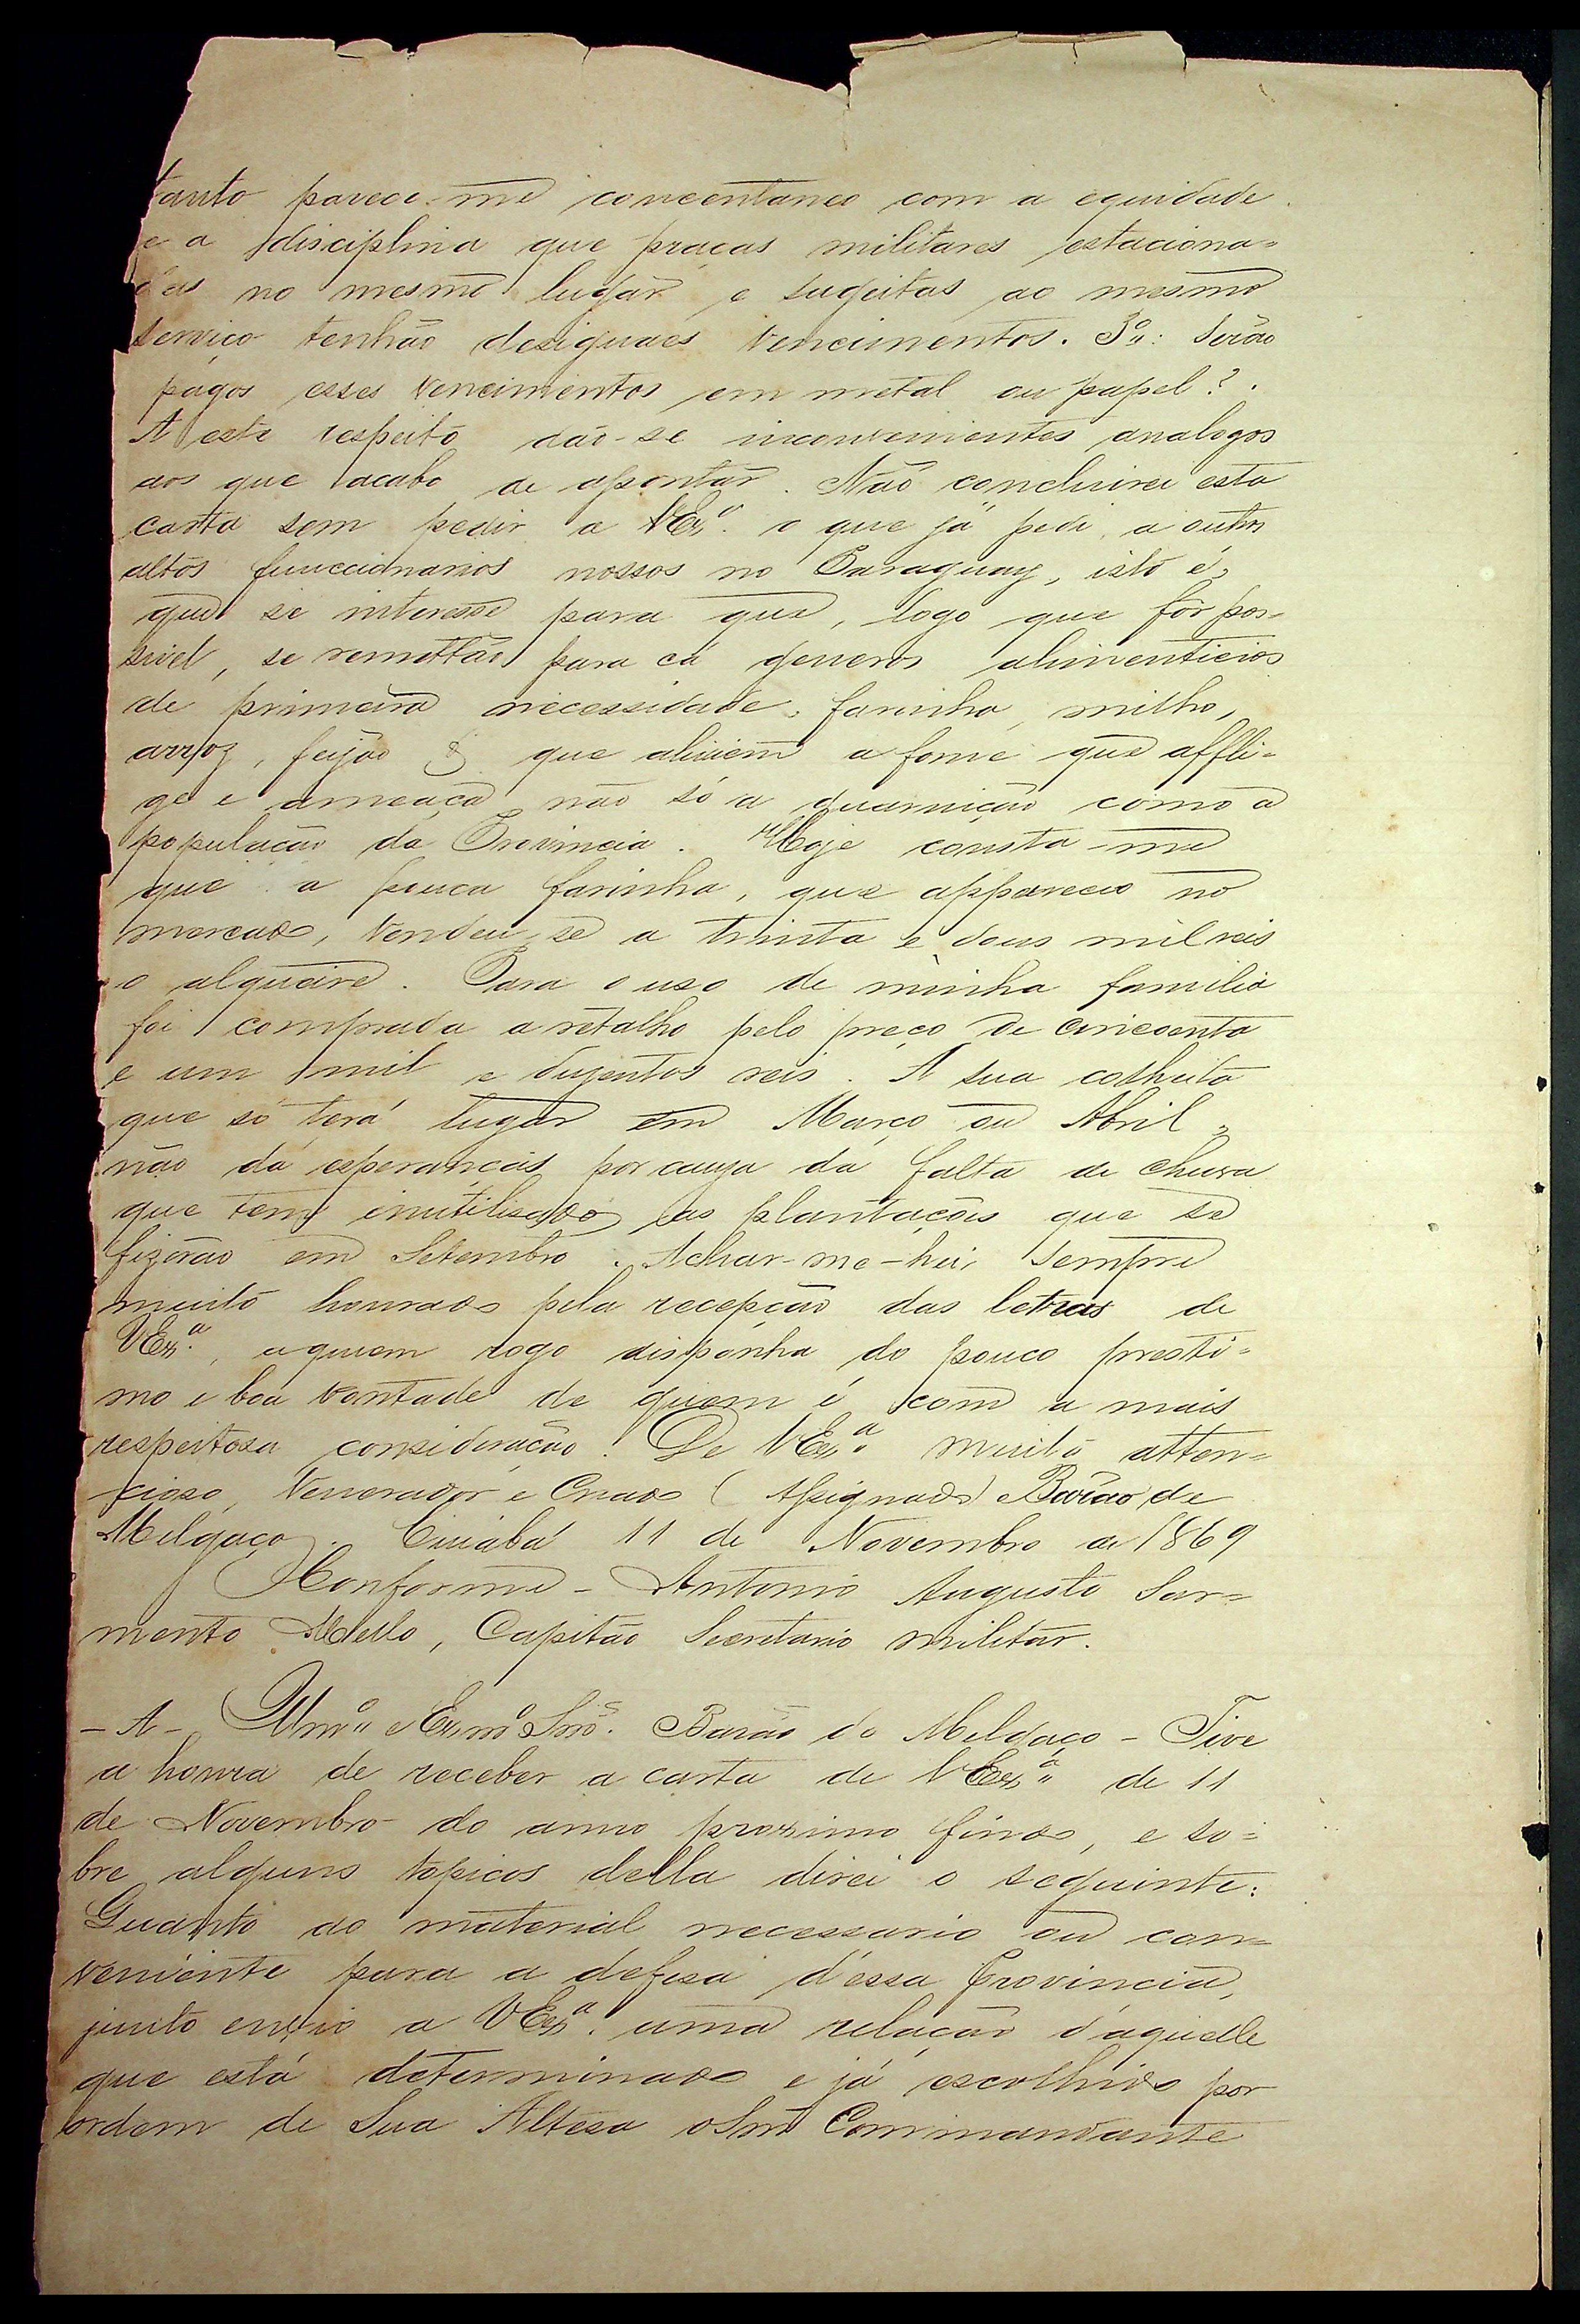 tanto parece-me concentaneo com a equidade
e a disciplina que praças militares estaciona=
das no mesmo lugar e sugeitas ao mesmo
serviço tenhão desiguaes vencimentos. 3º: Serão
pagos esses vencimentos em metal ou papel?.
A este respeito dão-se inconvenientes analogos
aos que acabo de apontar. Não concluirei esta
carta sem pedir a VExª. o que já pedi, a outros
altos funccionarios nossos no Paraguay, isto é,
que se interesse para que, logo que fôr pos=
sivel, se remettão para cá generos alimenticios
de primeira necessidade, farinha, milho,
arroz, feijão & que aliviem a fome que affli=
ge e ameaça não só a guarnição como a
população da Provincia. Hoje consta-me
que a pouca farinha, que appareceo no
mercado, vendeu-se a trinta e dous mil reis
o alqueire. Para o uso de minha familia
foi comprada a retalho pelo preço de cincoenta
e um mil e duzentos reis. A sua colheita
que só terá lugar em Março ou Abril,
não dá esperanças por causa da falta de chuva
que tem inutilisado as plantações que se
fizerão em Setembro. Achar-me-hei, sempre
muito honrado pela recepção das letras de
VExª., a quem rogo disponha do pouco presti=
mo e boa vontade de quem é com a mais
respeitosa consideração. De VExª. muito atten=
cioso, Venerador e Criado (Assignado) Barão de
Melgaço. Cuiabá 11 de Novembro de 1869
Conforme - Antonio Augusto Sar=
mento Mello, Capitão Secretario militar.
- A - Illmº e Exmº Snr. Barão de Melgaço - Tive
a honra de receber a carta de VExª. de 11
de Novembro do anno proximo findo, e so=
bre alguns topicos della direi o seguinte:
Quanto ao material necessario ou con=
veniente para a defesa d'essa Provincia,
junto envio a VExª. uma relação d'aquelle
que está determinado e já escolhido por
ordem de Sua Altesa o Snr Commandante